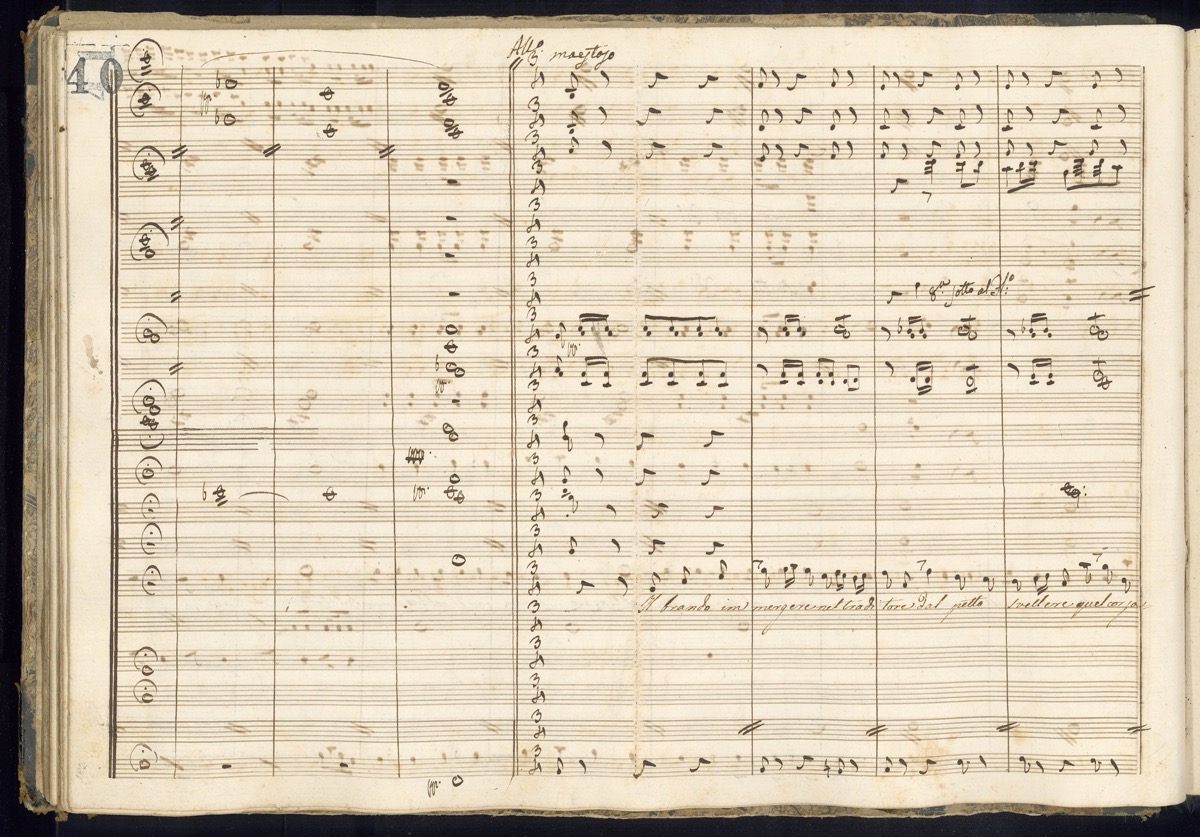 40
All.º maestoso
8.ª sotto al Fl.º
Il brando immergere nel traditore dal petto svellere quel cor